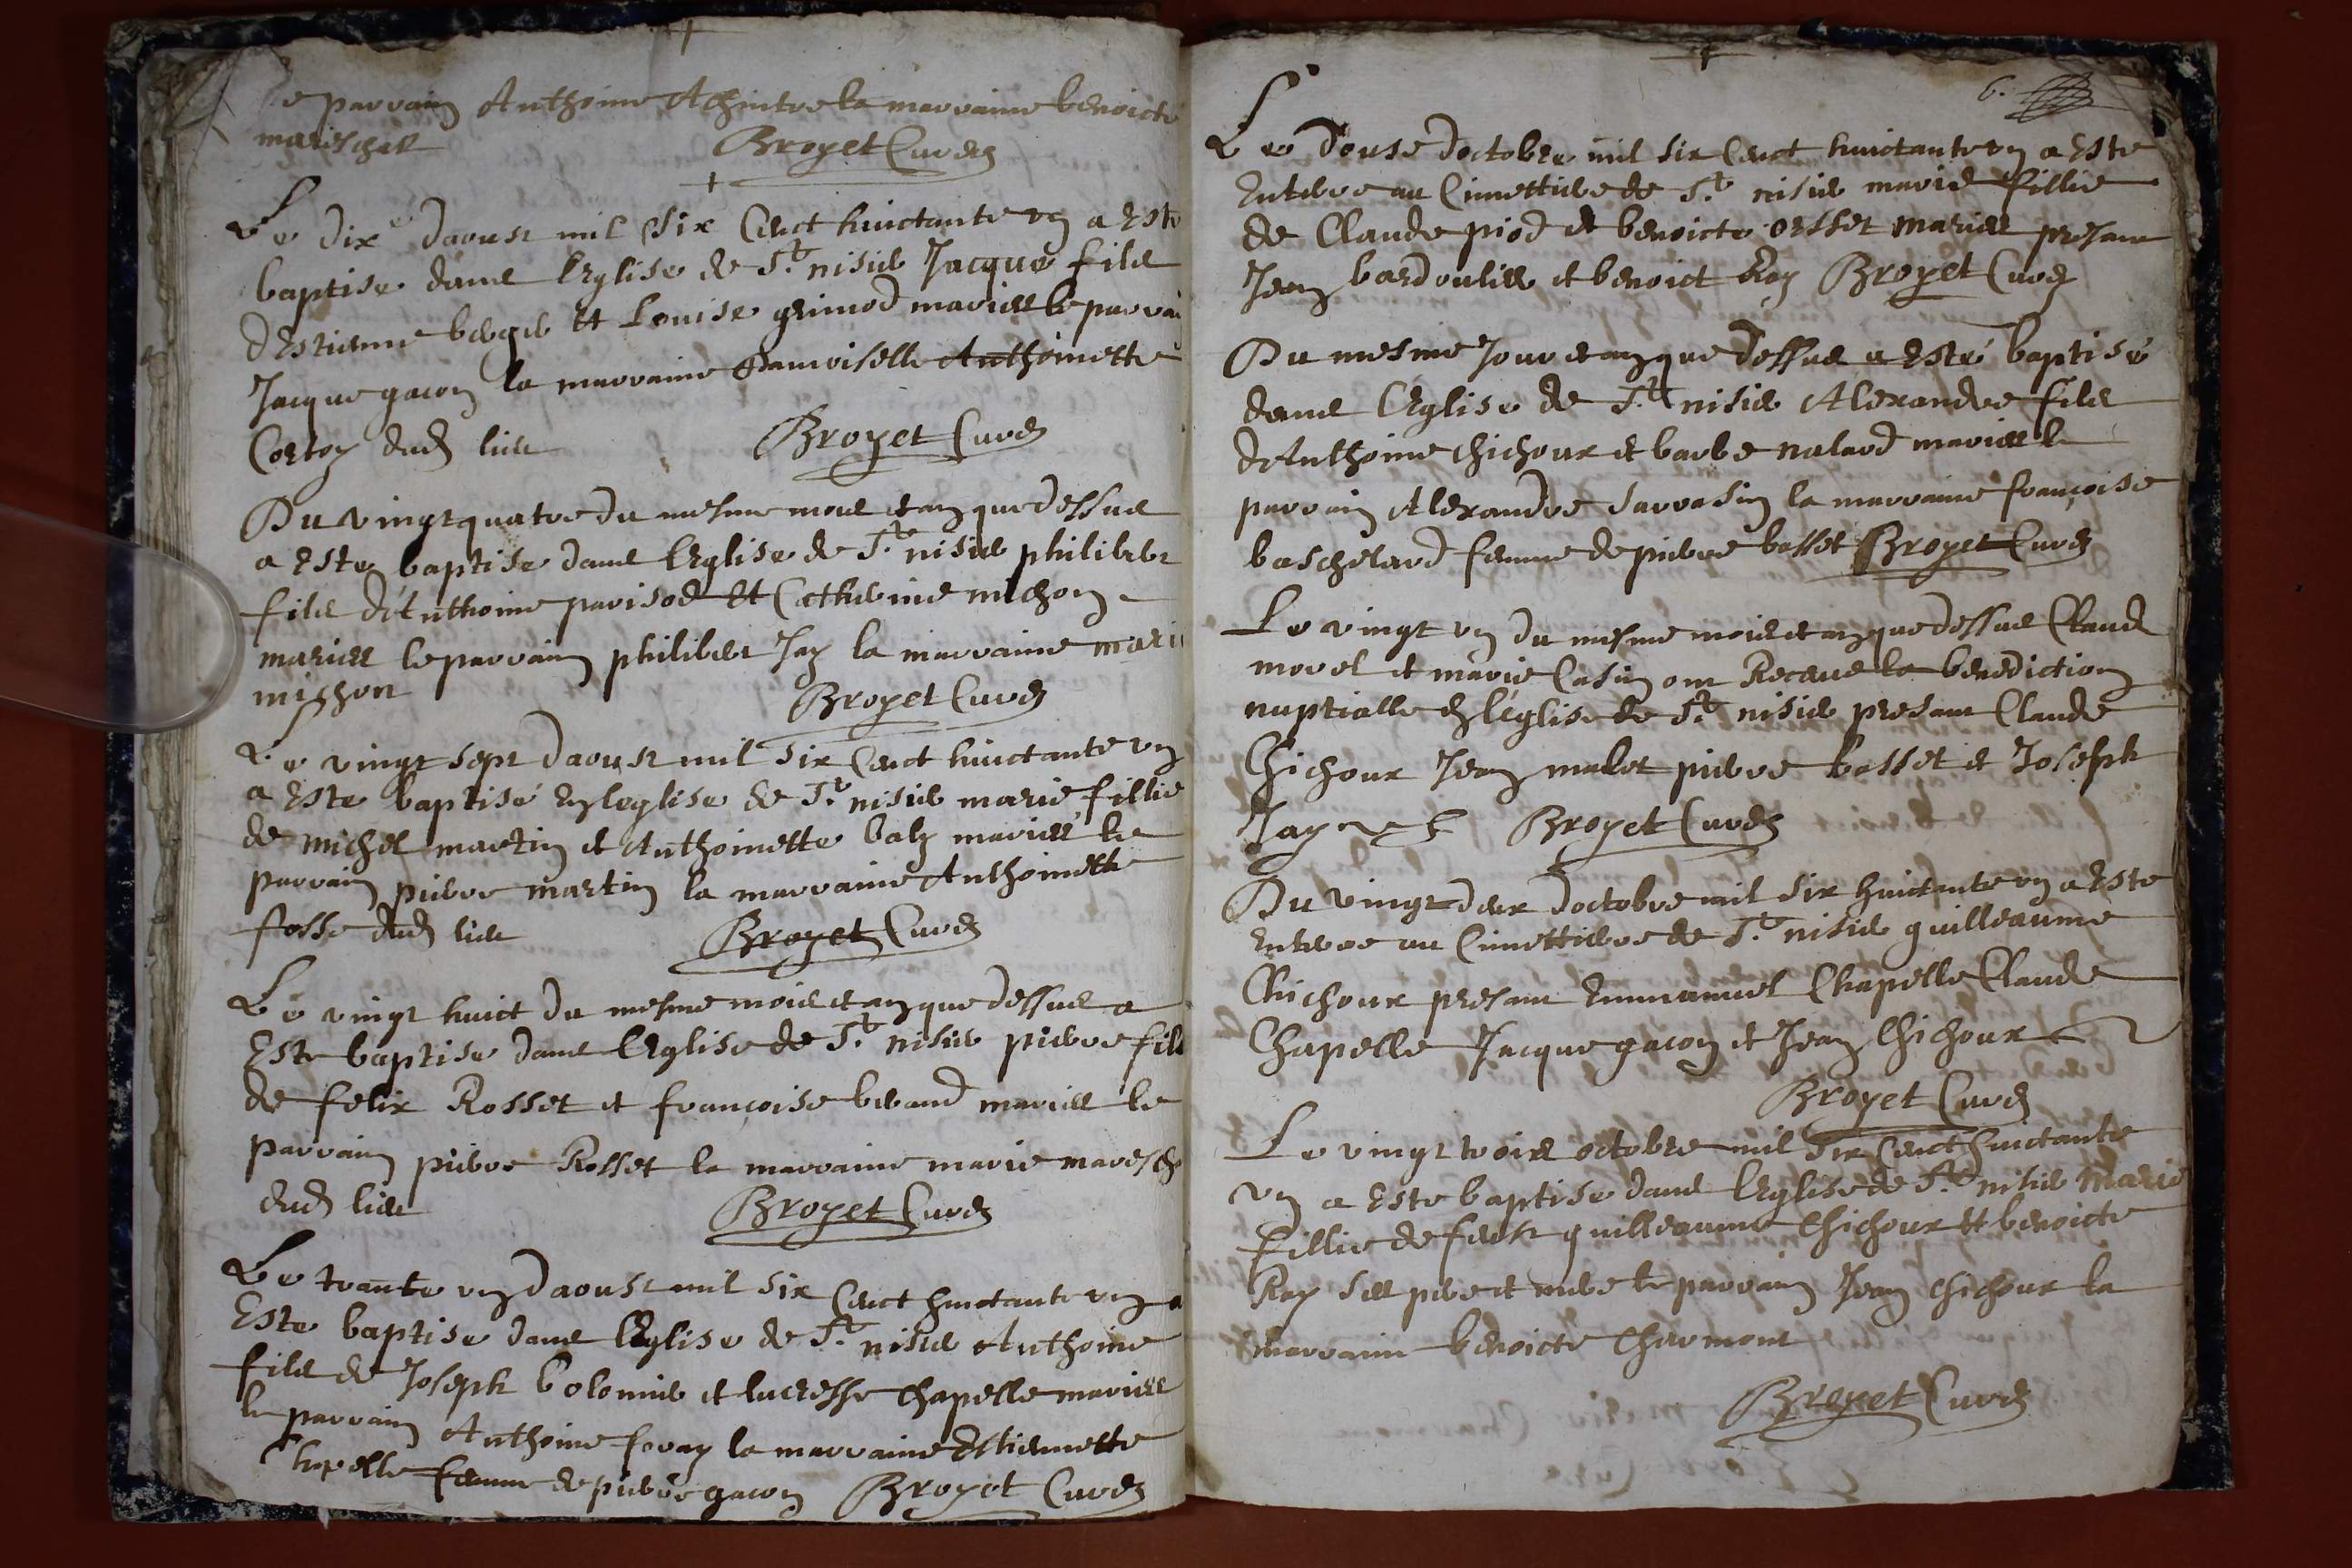 le parrain Anthoine Achintre la marraine benoicte
mareschal
Broyet Curé
Le dix daoust mil six Cent huictante un a Este
baptise dans lEglise de St. nisier Jacque fils
dEstienne berger Et Louise grimod mariés le parrain
Jacque gacon la marraine Damoiselle Anthoinette
Cortey dud lieu Broyet Curé
Du vingt quatre du mesme mois et an que dessus
a Este baptise dans lEglise de St. nisier philibert
fils dAnthoine parisod Et Catherine michon
mariés le parrain philibert Jay la marraine marie
michon Broyet Curé
Le vingt sept daoust mil six Cent huictante un
a Este baptisé En leglise de St. nisier marie fillie
de michel martin et Anthoinette baly mariés le
parrain pierre martin la marraine Anthoinette
fosse dud lieu Broyet Curé
Le vingt huict du mesme mois et an que dessus a
Este baptise dans lEglise de St. nisier pierre fils
de felix Rosset et françoise beraud mariés le
parrain pierre Rosset la marraine marie maresch
dud lieu Broyet Curé
Le trante un daoust mil six Cent huictante un a
Este baptise dans lEglise de St. nisier Anthoine
fils de Joseph bolomier et lucresse Chapelle mariés
le parrain Anthoine foray la marraine Estiennette
Chapelle femme de pierre gacon Broyet Curé
6.
Le douse doctobre mil six Cent huictante un a Este
Enterre au Cimettiere de St. nisier marie fillie
de Claude piod et benoicte orsset mariés presant
Jean bardoulier et benoict Rey Broyet Curé
Du mesme Jour et an que dessus a Esté baptisé
dans lEglise de St. nisier Alexandre fils
dAnthoine Chichoux et barbe nalard mariés le
parrain Alexandre sarrasin la marraine françoise
baschelard femme de pierre basset Broyet Curé
Le vingt un du mesme mois et an que dessus Claude
morel et marie Casin ont Receus la benediction
nuptialle En léglise de St. nisier presant Claude
Chichoux Jean malet pierre basset et Joseph
Jay Broyet Curé
Du vingt deux doctobre mil six huictante un a Este
Enterre au Cimettiere de St. nisier guilleaume
Chichoux presant Emmanuel Chapelle Claude
Chapelle Jacque gacon et Jean Chichoux
Broyet Curé
Le vingt trois octobre mil six Cent huictante
un a Este baptise dans lEglise de St. nisier Marie
fillie de feust guilleaume Chichoux Et benoicte
Rey ses pere et mere le parrain Jean Chichoux la
marraine benoicte Charmont
Broyet Curé